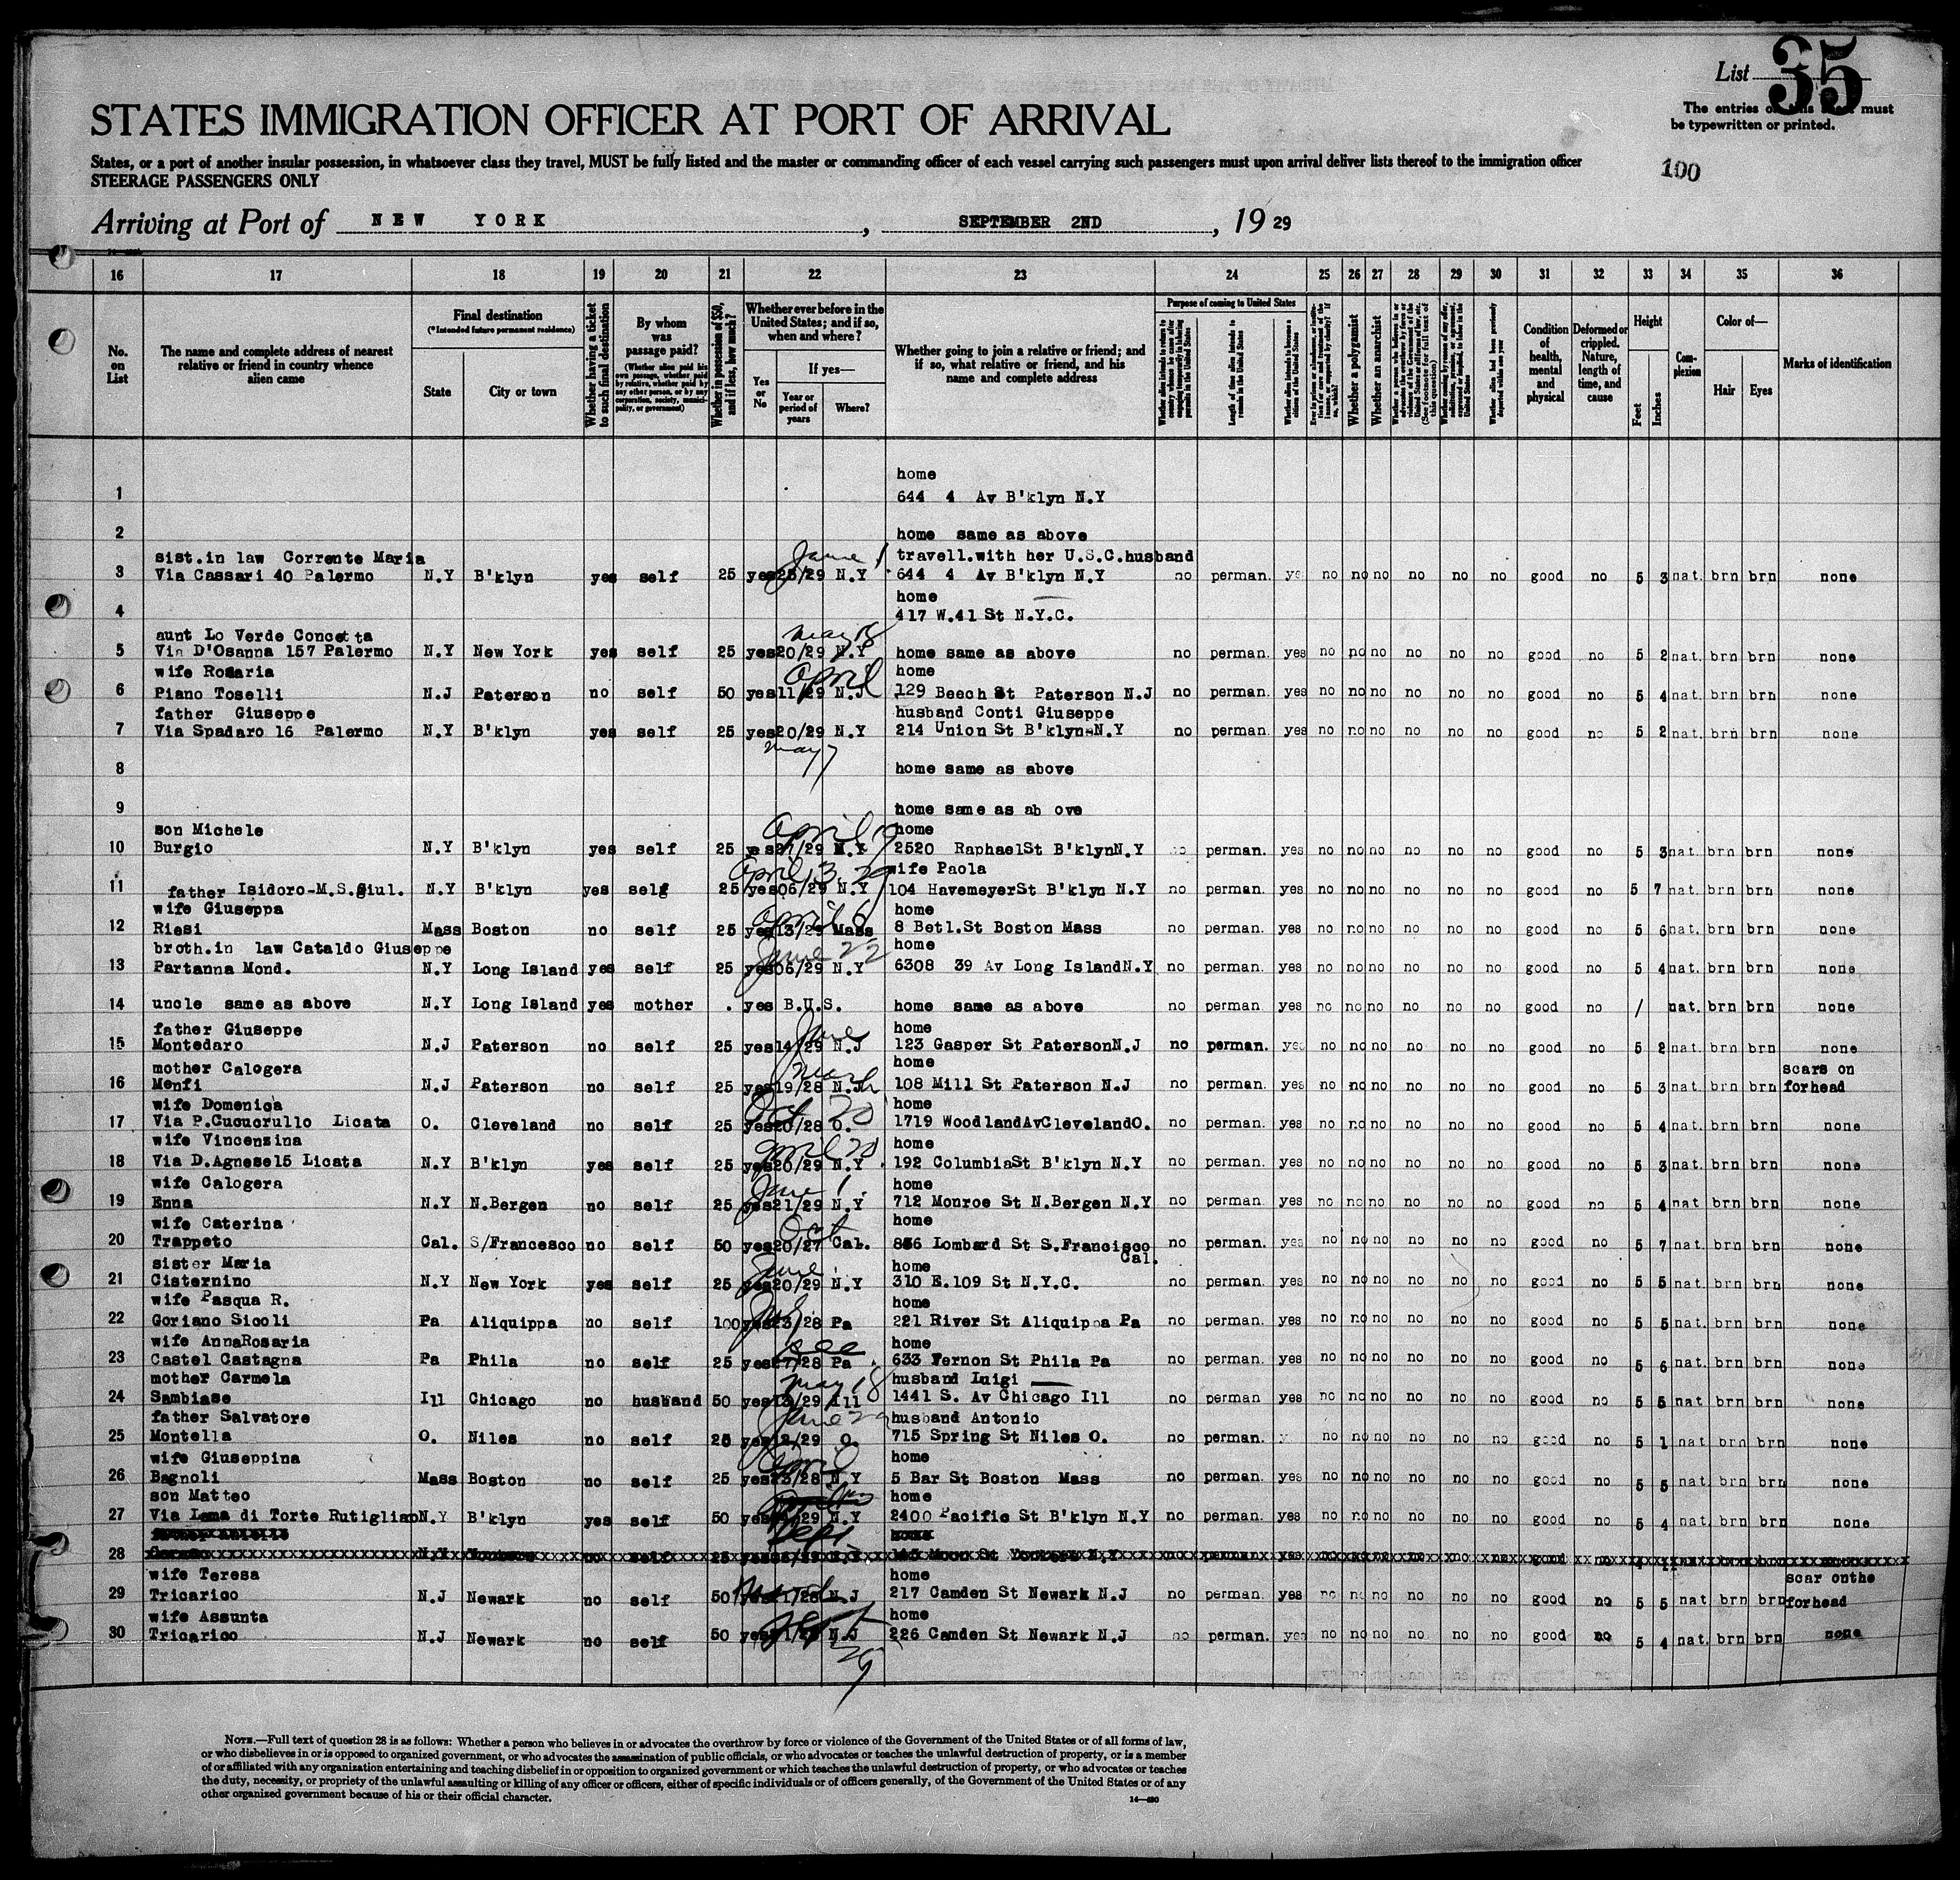 List 35
The entries on this sheet must
be typewritten or printed.
STATES IMMIGRATION OFFICER AT PORT OF ARRIVAL
States, or a port of another insular possession, in whatsoever class they travel, MUST be fully listed and the master or commanding officer of each vessel carrying such passengers must upon arrival deliver lists thereof to the immigration officer
STEERAGE PASSENGERS ONLY
100
Arriving at Port of NEW YORK, SEPTEMBER 2ND, 19 29
16 17 18 19 20 21 22 23 24 25 26 27 28 29 30 31 32 33 34 35 36
No. on List
The name and complete address of nearest relative or friend in country whence alien came
Final destination
(*Intended future permanent residence)
State
City or town
Whether having a ticket to such final destination
By whom was passage paid?
(Whether alien paid his own passage, whether paid by relative, whether paid by any other person, or by any corporation, society, municipality, or government)
Whether in possession of $50, and if less, how much?
Whether ever before in the United States; and if so, when and where?
Yes or No
If yes—
Year or period of years
Where?
Whether going to join a relative or friend; and if so, what relative or friend, and his name and complete address
Purpose of coming to United States
Length of time alien intends to remain in the United States
Whether a polygamist
Whether an anarchist
Condition of health, mental and physical
Deformed or crippled. Nature, length of time, and cause
Height
Feet
Inches
Complexion
Color of—
Hair
Eyes
Marks of identification
home
1 644 4 Av B'klyn N.Y
2 home same as above
sist.in law Corrente Maria June 1 travell.with her U.S.C.husband
3 Via Cassari 40 Palermo N.Y B'klyn yes self 25 yes 25/29 N.Y 644 4 Av B'klyn N.Y no perman. yes no no no no no no good no 5 3 nat. brn brn none
home
4 417 W.41 St N.Y.C.
aunt Lo Verde Concetta may 18
5 Via D'Osanna 157 Palermo N.Y New York yes self 25 yes 20/29 N.Y home same as above no perman. yes no no no no no no good no 5 2 nat. brn brn none
wife Rosaria April home
6 Piano Toselli N.J Paterson no self 50 yes 11/29 N.J 129 Beech St Paterson N.J no perman. yes no no no no no no good no 5 4 nat. brn brn none
father Giuseppe husband Conti Giuseppe
7 Via Spadaro 16 Palermo N.Y B'klyn yes self 25 yes 20/29 N.Y 214 Union St B'klyn-N.Y no perman. yes no no no no no no good no 5 2 nat. brn brn none
may 7
8 home same as above
9 home same as ab ove
son Michele April 19 home
10 Burgio N.Y B'klyn yes self 25 yes 27/29 N.Y 2520 RaphaelSt B'klynN.Y no perman. yes no no no no no no good no 5 3 nat. brn brn none
April 3. 29 wife Paola
11 father Isidoro-M.S.Giul. N.Y B'klyn yes self 25 yes 06/29 N.Y 104 HavemeyerSt B'klyn N.Y no perman. yes no no no no no no good no 5 7 nat. brn brn none
wife Giuseppa April 6 home
12 Riesi Mass Boston no self 25 yes 13/29 Mass 8 Betl.St Boston Mass no perman. yes no no no no no no good no 5 6 nat. brn brn none
broth.in law Cataldo Giuseppe June 22 home
13 Partanna Mond. N.Y Long Island yes self 25 yes 06/29 N.Y 6308 39 Av Long IslandN.Y no perman. yes no no no no no no good no 5 4 nat. brn brn none
14 uncle same as above N.Y Long Island yes mother . yes B.U.S. home same as above no perman. yes no no no no no no good no / nat. brn brn none
father Giuseppe June home
15 Montedaro N.J Paterson no self 25 yes 14/29 N.J 123 Gasper St PatersonN.J no perman. yes no no no no no no good no 5 2 nat. brn brn none
mother Calogera home scars on
16 Menfi N.J Paterson no self 25 yes 19/28 N.J 108 Mill St Paterson N.J no perman. yes no no no no no no good no 5 3 nat. brn brn forhead
wife Domenica Oct 20 home
17 Via P.Cucucrullo Licata O. Cleveland no self 25 yes 20/28 O. 1719 WoodlandAvClevelandO. no perman. yes no no no no no no good no 5 4 nat. brn brn none
wife Vincenzina April 20 home
18 Via D.Agnese15 Licata N.Y B'klyn yes self 25 yes 20/29 N.Y. 192 ColumbiaSt B'klyn N.Y no perman. yes no no no no no no good no 5 3 nat. brn brn none
wife Calogera June 1. home
19 Enna N.Y N.Bergen no self 25 yes 21/29 N.Y. 712 Monroe St N.Bergen N.Y no perman. yes no no no no no no good no 5 4 nat. brn brn none
wife Caterina Oct home
20 Trappeto Cal. S/Francesco no self 50 yes 20/27 Cal. 856 Lombard St S.Francisco Cal. no perman. yes no no no no no no good no 5 7 nat. brn brn none
sister Maria June home
21 Cisternino N.Y New York yes self 25 yes 20/29 N.Y 310 E.109 St N.Y.C. no perman. yes no no no no no no good no 5 5 nat. brn brn none
wife Pasqua R. home
22 Goriano Sicoli Pa Aliquippa no self 100 yes 23/28 Pa 221 River St Aliquippa Pa no perman. yes no no no no no no good no 5 5 nat. brn brn none
wife AnnaRosaria Dec home
23 Castel Castagna Pa Phila no self 25 yes 27/28 Pa. 633 Vernon St Phila Pa no perman. yes no no no no no no good no 5 6 nat. brn brn none
mother Carmela may 18 husband Luigi
24 Sambiase Ill Chicago no husband 50 yes 13/29 Ill 1441 S. Av Chicago Ill no perman yes no no no no no no good no 5 5 nat. brn brn none
father Salvatore June 29 husband Antonio
25 Montella O. Niles no self 25 yes 12/29 O. 715 Spring St Niles O. no perman. no no no no no no good no 5 1 nat brn brn none
wife Giuseppina April home
26 Bagnoli Mass Boston no self 25 yes 23/28 N.Y 5 Bar St Boston Mass no perman. yes no no no no no no good no 5 5 nat. brn brn none
son Matteo home
27 Via Lama di Torte Rutigliano N.Y B'klyn yes self 50 yes 29 N.Y 2400 Pacific St B'klyn N.Y no perman. yes no no no no no no good no 5 4 nat. brn brn none
Sept
28
wife Teresa home scar onthe
29 Tricarico N.J Newark no self 50 yes 21/28 N.J 217 Camden St Newark N.J no perman. yes no no no no no no good no 5 5 nat brn brn forhead
wife Assunta Sept home
30 Tricarico N.J Newark no self 50 yes N.J 226 Camden St Newark N.J no perman. yes no no no no no no good no 5 4 nat. brn brn none
29
NOTE.—Full text of question 28 is as follows: Whether a person who believes in or advocates the overthrow by force or violence of the Government of the United States or of all forms of law,
or who disbelieves in or is opposed to organized government, or who advocates the assassination of public officials, or who advocates or teaches the unlawful destruction of property, or is a member
of or affiliated with any organization entertaining and teaching disbelief in or opposition to organized government or which teaches the unlawful destruction of property, or who advocates or teaches
the duty, necessity, or propriety of the unlawful assaulting or killing of any officer or officers, either of specific individuals or of officers generally, of the Government of the United States or of any
other organized government because of his or their official character.
14—430